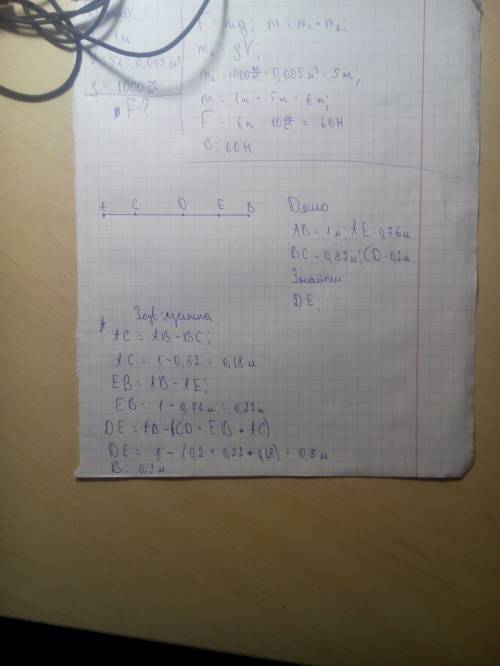 1м
V = 5л = 0,005 м³
ρ = 1000
F = ?
F = mg; m = m₁ + m₂.
m₂ = ρV;
m₂ = 1000 · 0,005м³ = 5м;
m = 1м + 5м = 6м;
F = 6м · 10 = 60Н
В: 60Н
A C D E B
Дано
AB = 1м, AE = 0,76м
BC - 0,82м; CD = 0,2м.
Знайти
DE
Розв'язання
AC = AB - BC;
AC = 1 - 0,82 = 0,18 м.
EB = AB - AE;
EB = 1 - 0,76м = 0,22м
DE = AB - (CD + EB + AC)
DE = 1 - (0,2 + 0,22 + 0,18) = 0,3 м
В: 0,3м.